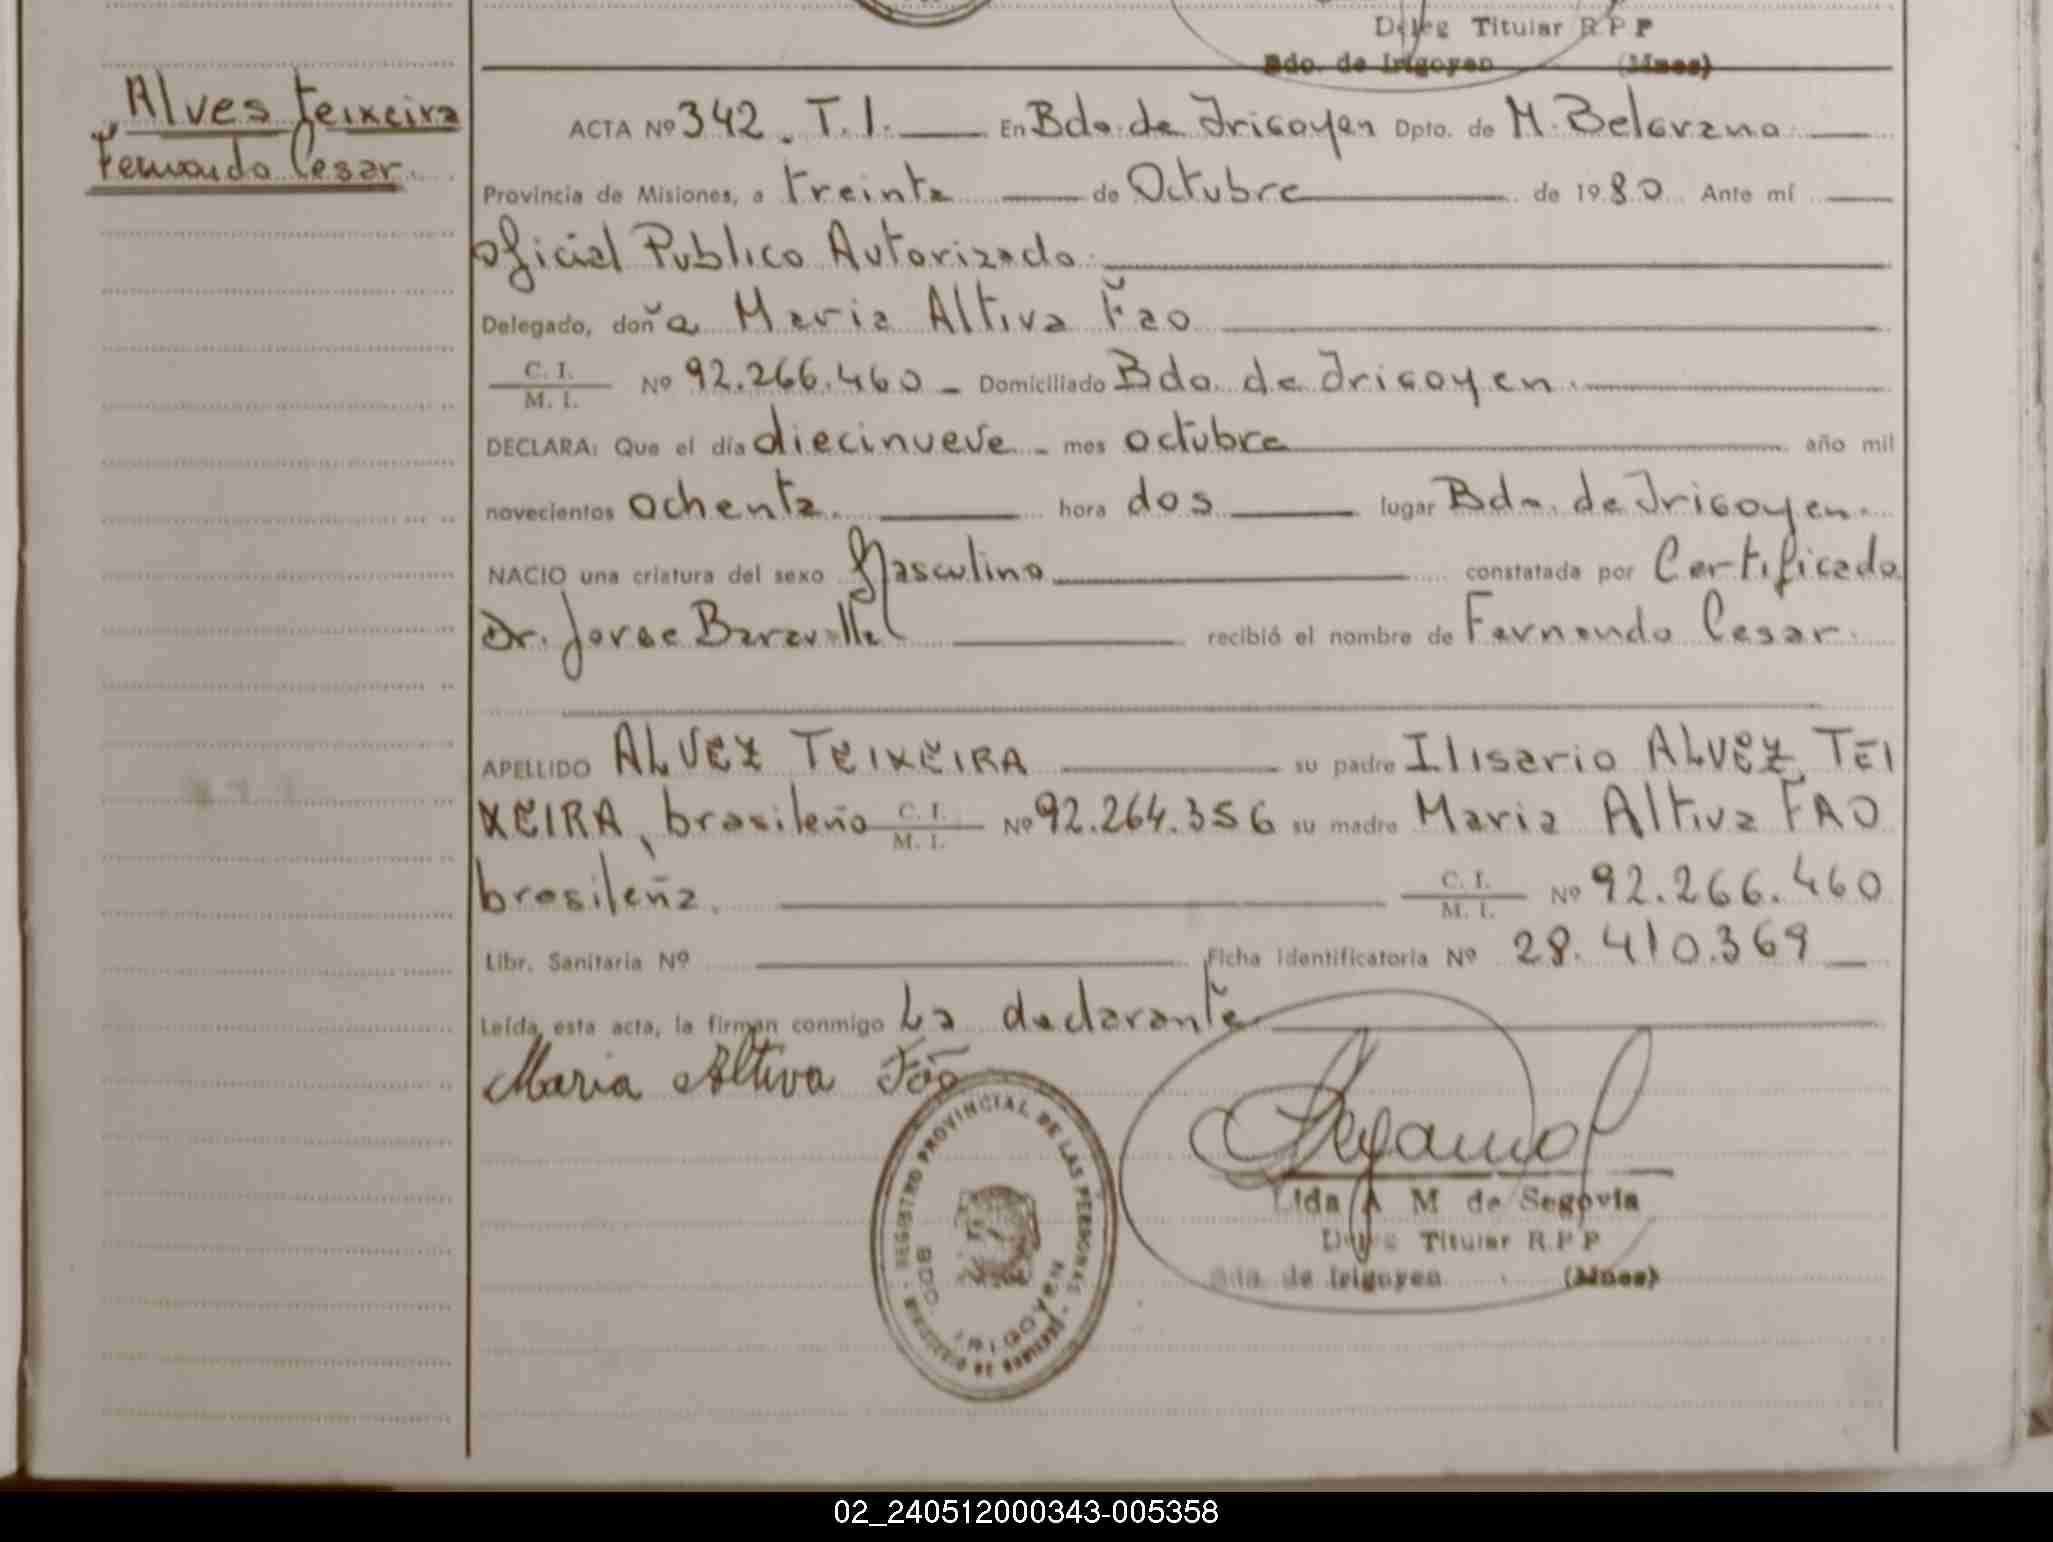 Deleg Titular R P P
Bdo. de Irigoyen (Mnes)
Alves Teixeira
Fernando Cesar.
ACTA Nº 342. T.I. En Bdo. de Irigoyen Dpto. de M. Belgrano
Provincia de Misiones, a treinta de Octubre de 1980 Ante mí
Oficial Publico Autorizado
Delegado, doña Maria Altiva Fao
C. I.
M. I. Nº 92.266.460 - Domiciliado Bdo. de Irigoyen.
DECLARA: Que el día diecinueve - mes octubre año mil
novecientos ochenta. hora dos lugar Bdo. de Irigoyen.
NACIO una criatura del sexo Masculino constatada por Certificado
Dr. Jorge recibió el nombre de Fernando Cesar.
APELLIDO ALVEZ TEIXEIRA su padre Ilisario ALVEZ TEI
XEIRA, brasileño C. I.
M. I. Nº 92.264.356 su madre Maria Altiva FAO
brasileña. C. I.
M. I. Nº 92.266.460
Libr. Sanitaria Nº Ficha Identificatoria Nº 28.410.369
Leída, esta acta, la firman conmigo La declarante
Maria Altiva Fão
REGISTRO PROVINCIAL DE LAS PERSONAS
BDO. IRIGOYEN
Lida A M de Segovia
Deleg Titular R.P P
Bdo. de Irigoyen (Mnes)
02_240512000343-005358